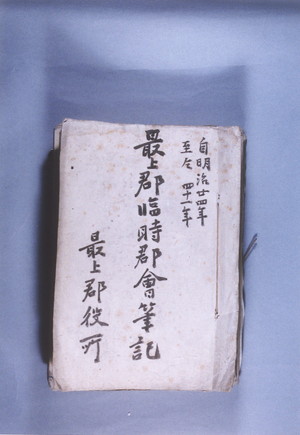 自明治廿四年
至仝四十一年
最上郡臨時郡會筆記
最上郡役所